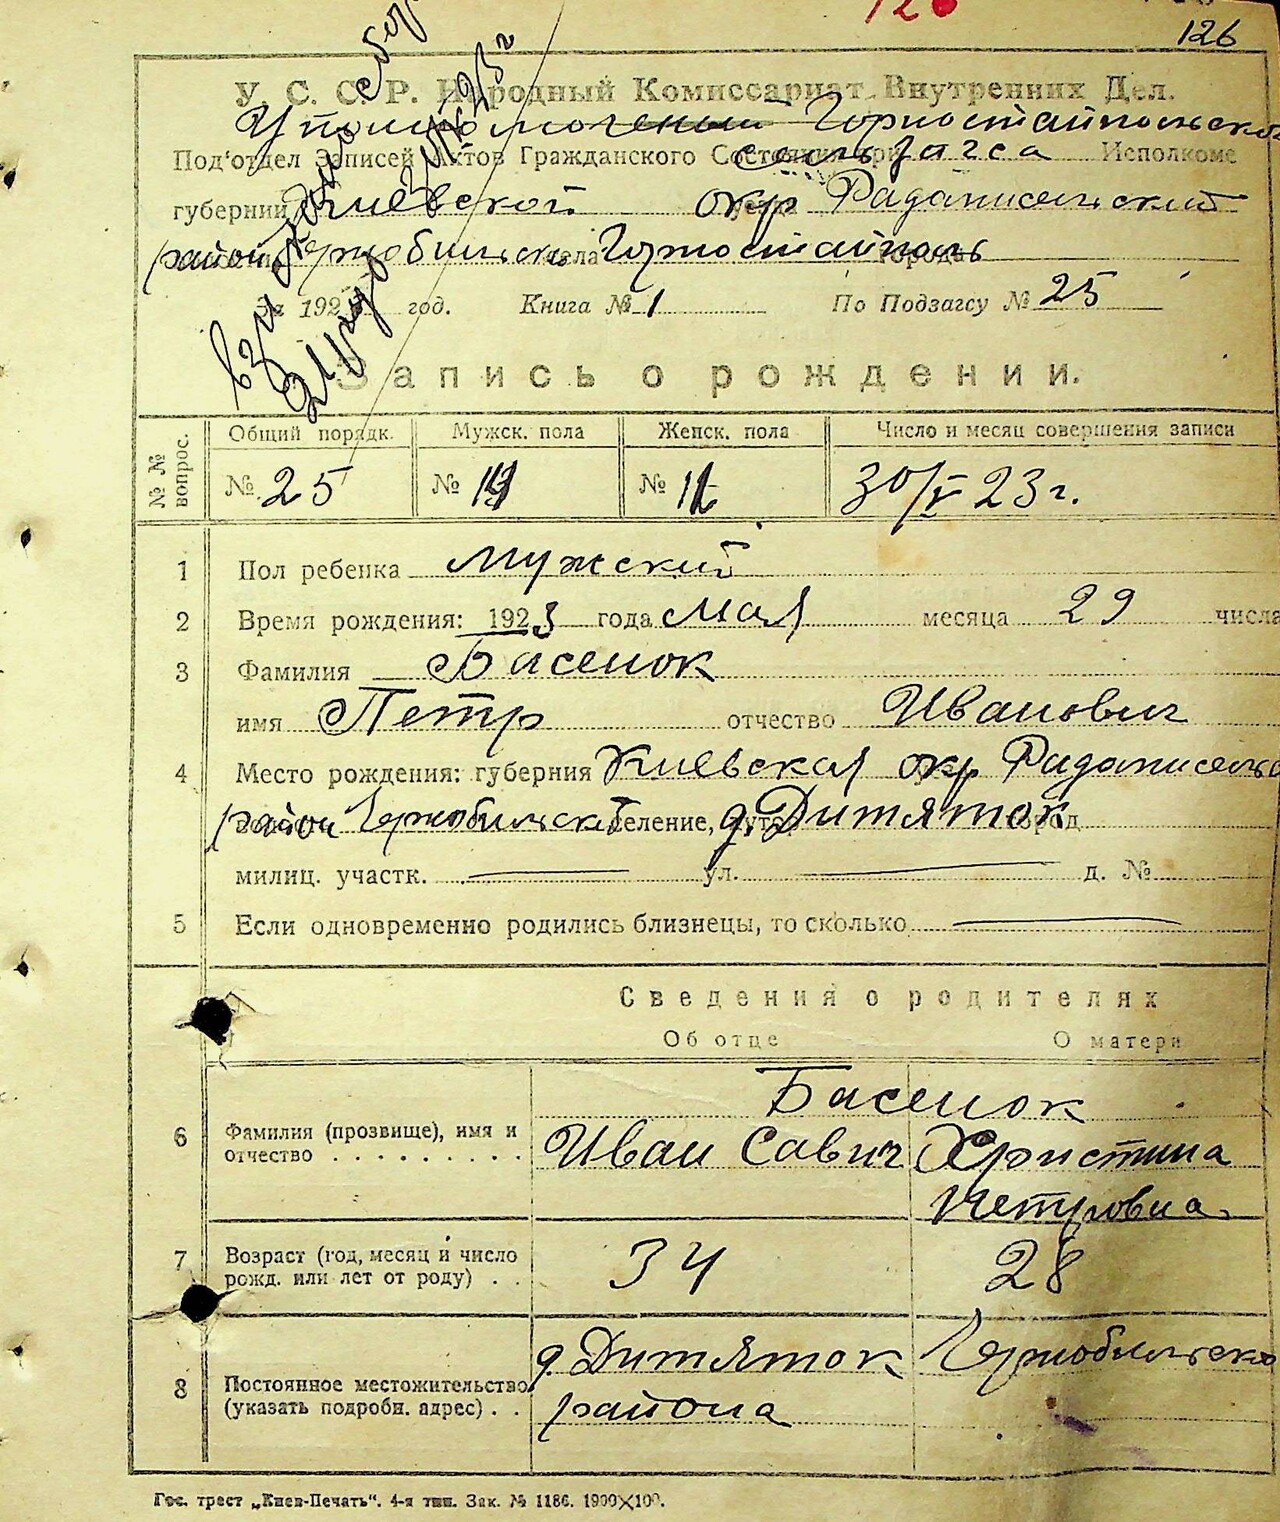 126
126
У. С. С. Р. Народный Комиссариат Внутренних Дел.
Уполномоченный Горностайпольско
Под'отдел Записей Актов Гражданского Состояния при сельзагса Исполкоме
губернии Киевской окр Радомисельский
район Чернобильск села Горностайполь
За 192 год. Книга № 1 По Подзагсу № 25
Запись о рождении.
№№ вопрос. Общий порядк. Мужск. пола Женск. пола Число и месяц совершения записи
№ 25 № № 30/V 23 г.
1 Пол ребенка мужский
2 Время рождения: 1923 года мая месяца 29 числа
3 Фамилия Басенок
имя Петр отчество Иванович
4 Место рождения: губерния Киевская окр Радомисельс
район Чернобильский селение, д. Дитяток
милиц. участк. ул. д. №
5 Если одновременно родились близнецы, то сколько
Сведения о родителях
Об отце О матери
Басенок
6 Фамилия (прозвище), имя и Иван Савич Христина
отчество Петровна
7 Возраст (год, месяц и число 34 28
рожд. или лет от роду)
д. Дитяток Чернобильско
8 Постоянное местожительство района
(указать подробн. адрес)
Гос. трест „Киев-Печать“. 4-я тип. Зак. № 1186. 1900×100.